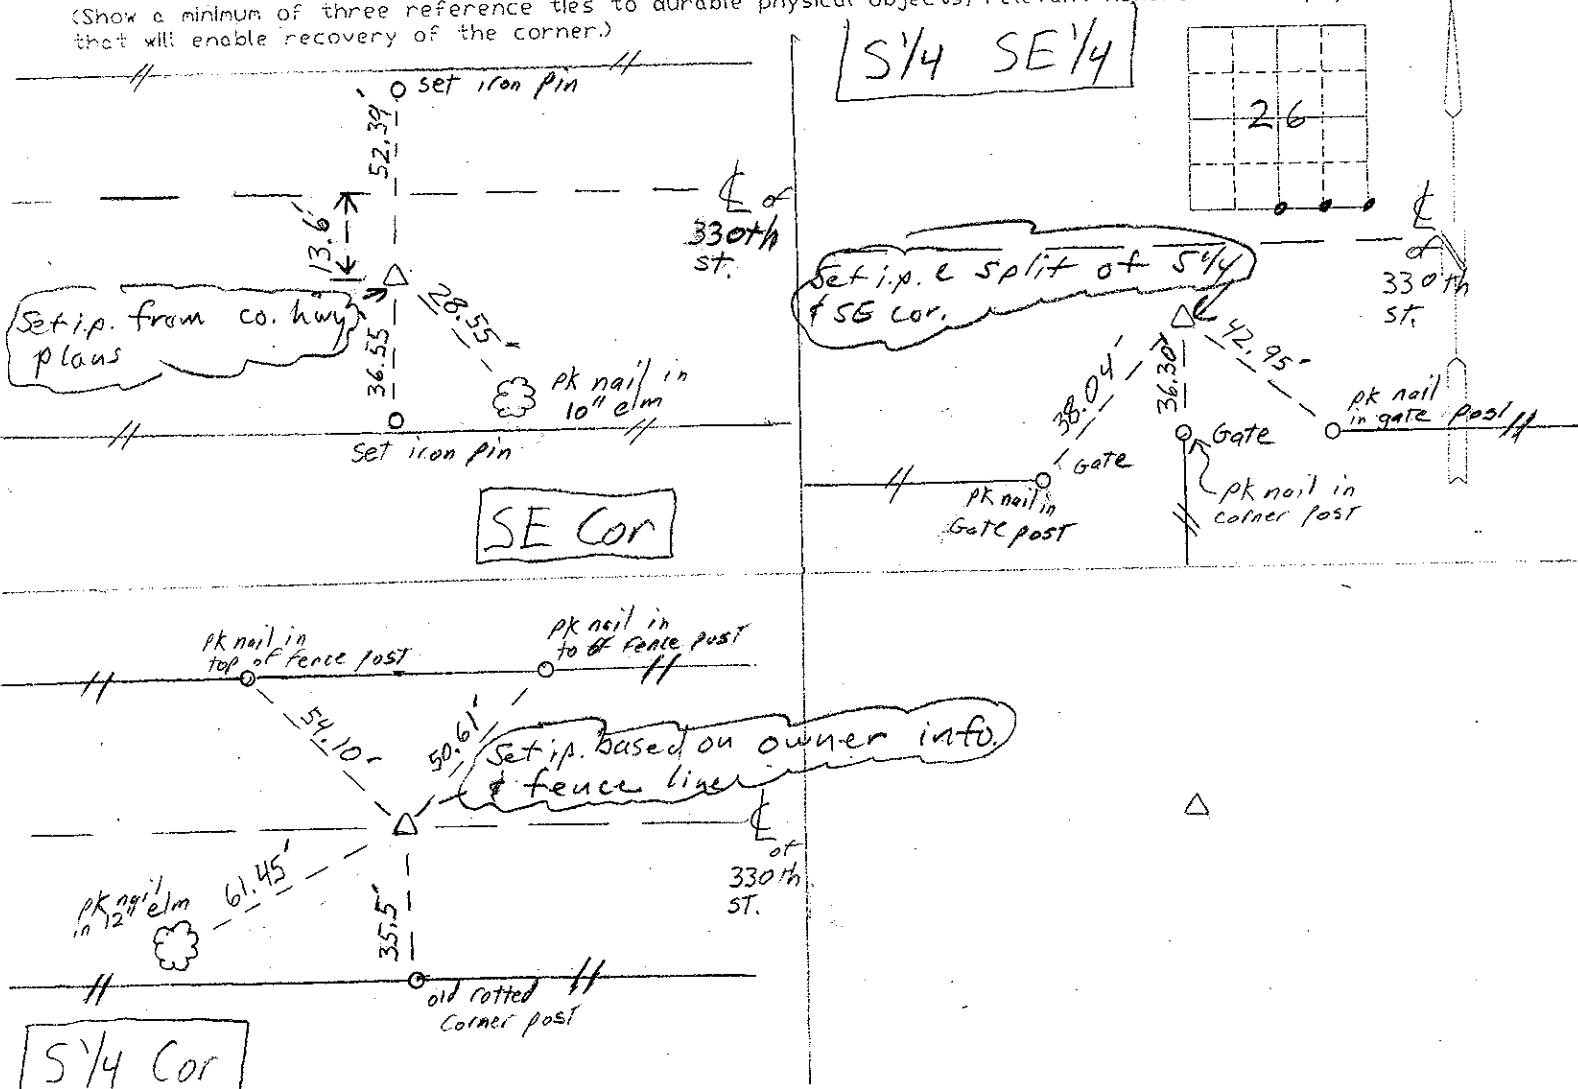 (Show a minimum of three reference ties to durable physical objects,
that will enable recovery of the corner.)
set iron pin
52.39'
13.6'
℄ of
330th
st.
Set i.p. from co. hwy
plans
28.55'
36.55'
pk nail in
10" elm
set iron pin
SE Cor
S1/4 SE1/4
26
℄
of
330th
st.
Set i.p. @ split of S1/4
& SE cor.
38.04'
36.30'
42.95'
pk nail
in gate post
Gate
Gate
pk nail in
Gate post
pk nail in
corner post
pk nail in
top of fence post
pk nail in
to of fence post
54.10'
50.61'
Set i.p. based on owner info.
& fence line
℄
of
330th
ST.
pk nail
in 12" elm
61.45'
35.5'
old rotted
Corner post
S1/4 Cor